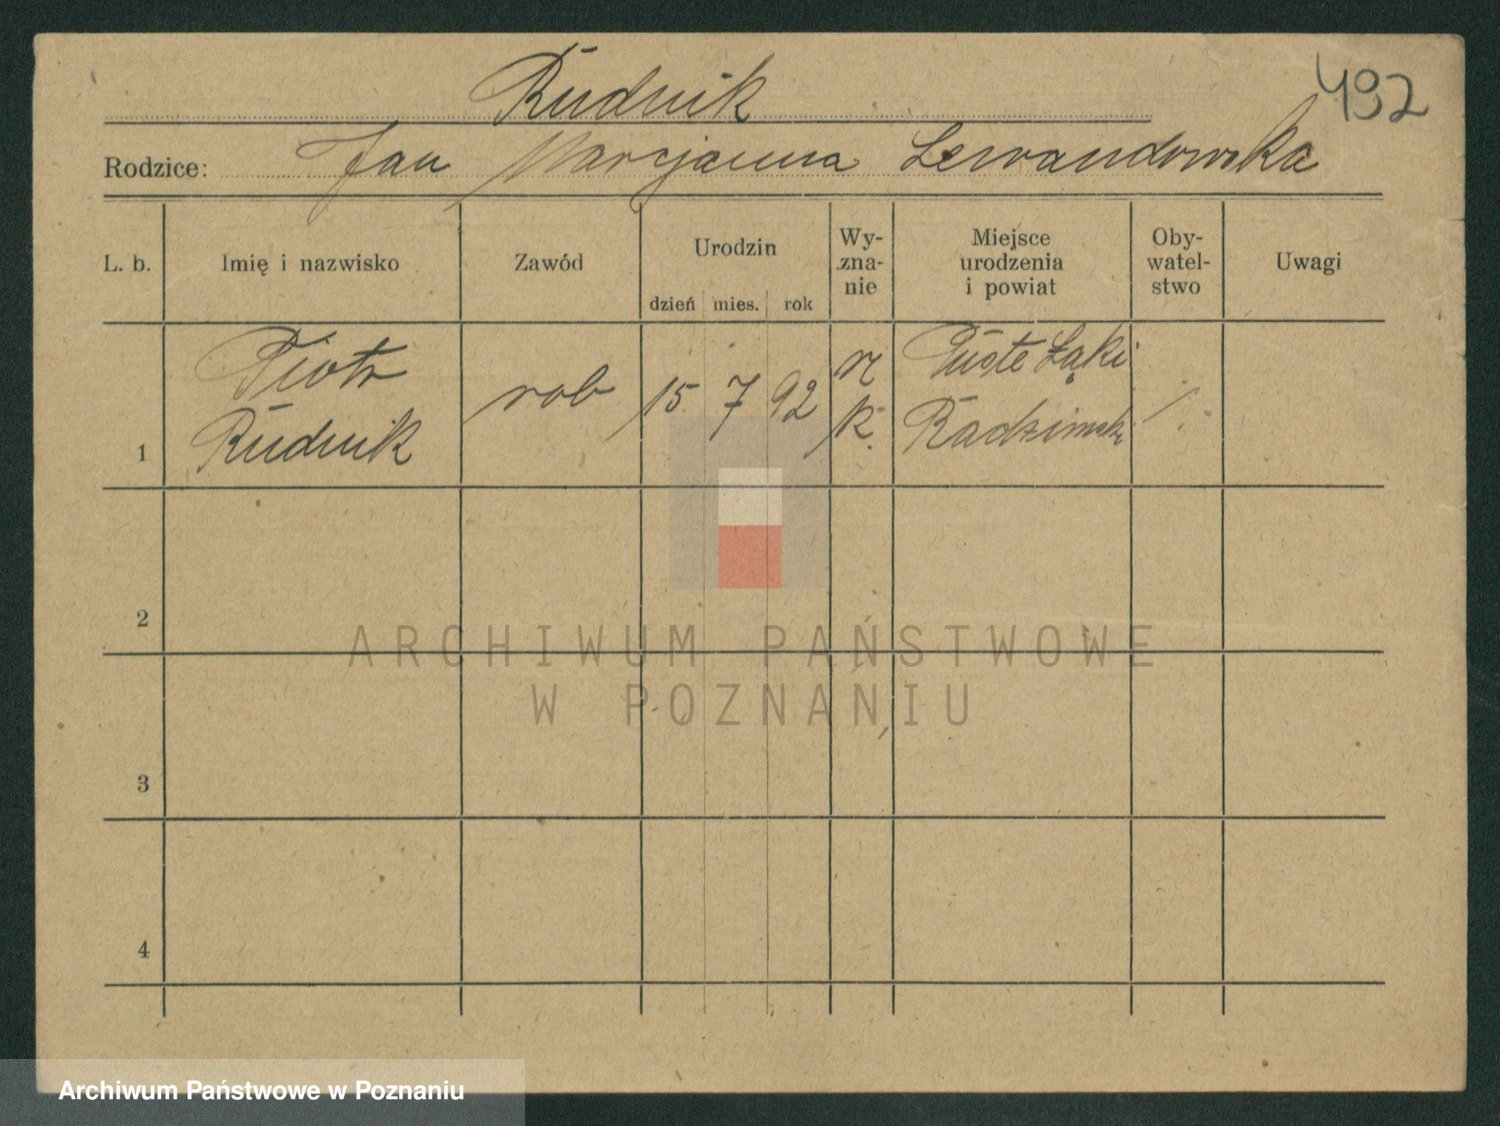 492
Rudnik
Rodzice: Jan Marcjanna Lewandowska
L. b. Imię i nazwisko Zawód Urodzin dzień mies. rok Wy-zna-nie Miejsce urodzenia i powiat Oby-watel-stwo Uwagi
Piotr rob 15 7 92 rz Puste Łąki
1 Rudnik k. Radzimski
2
3
4
ARCHIWUM PAŃSTWOWE
W POZNANIU
Archiwum Państwowe w Poznaniu